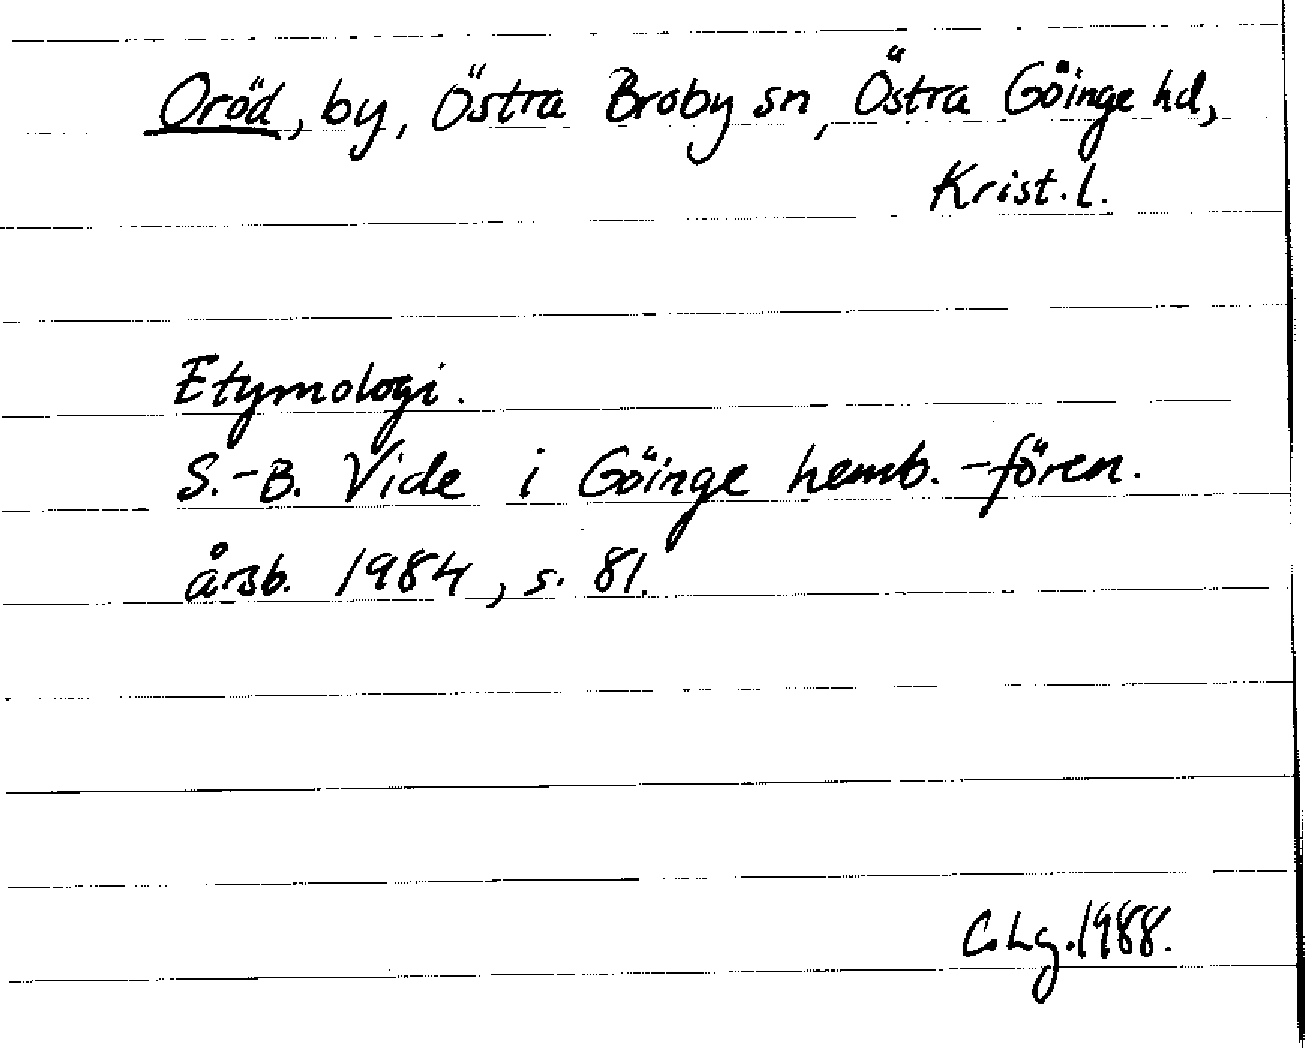 Oröd, by, Östra Broby sn, Östra Göinge hd,
Krist. l.
Etymologi.
S.-B. Vide i Göinge hemb.-fören.
årsb. 1984, s. 81.
C. Lg. 1988.